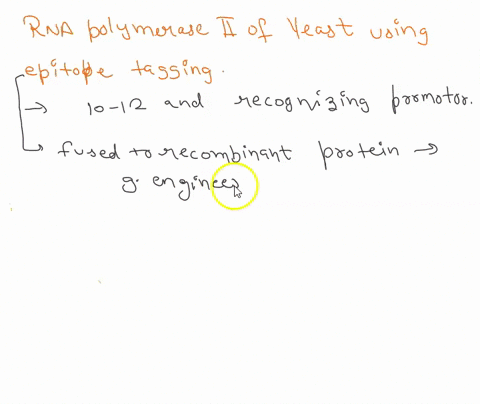 RNA polymerase II of Yeast using
epitope tagging.
→ 10-12 and recognizing promotor.
→ fused to recombinant protein →
g. engineer